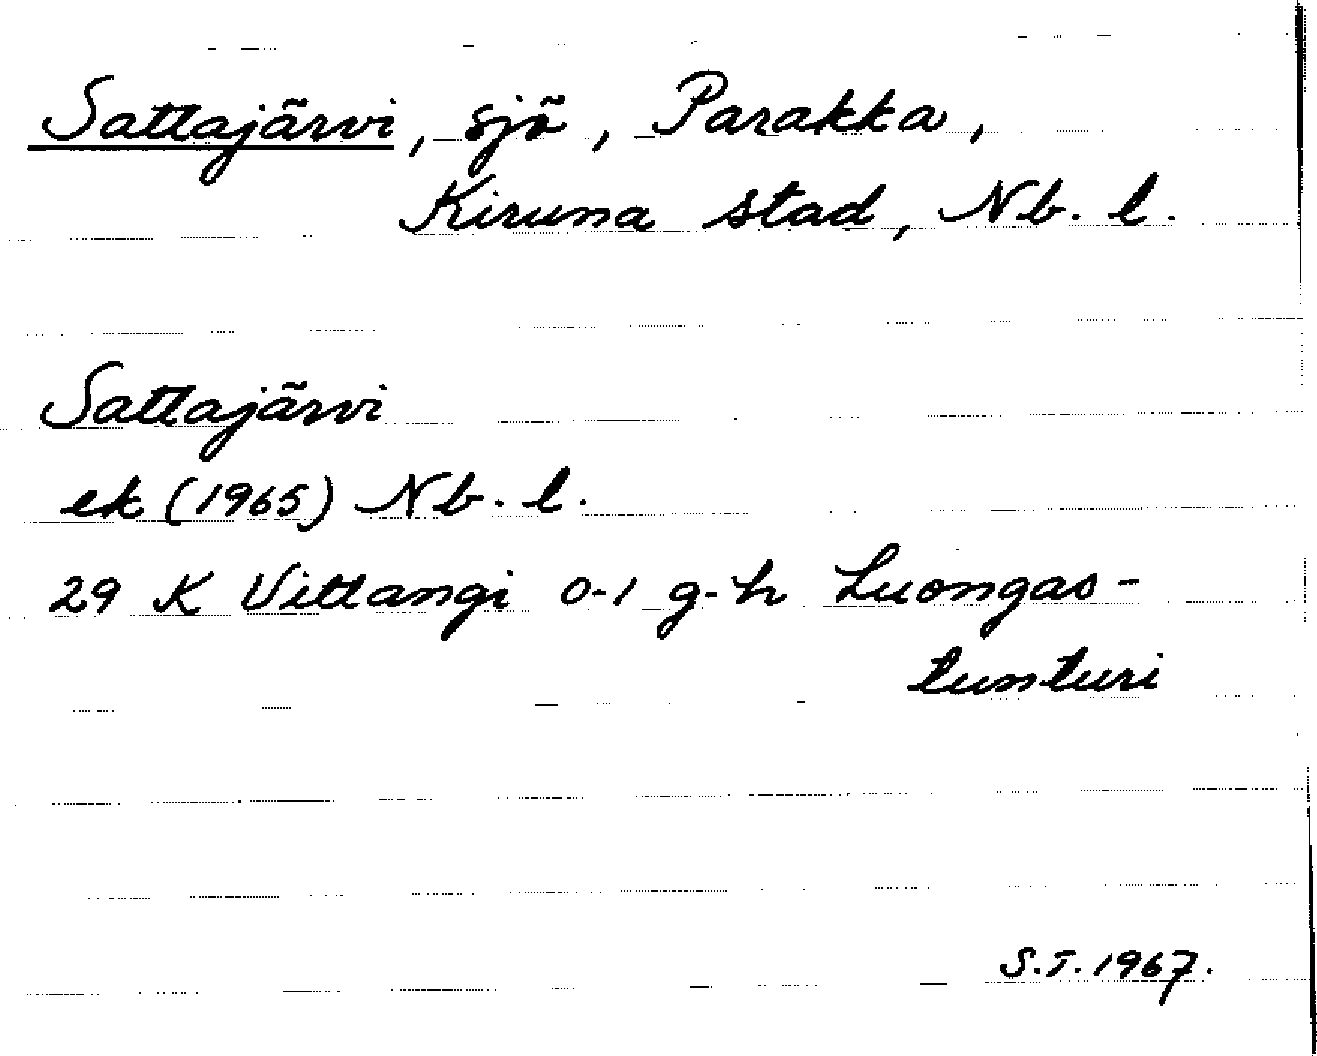 Sattajärvi, sjö, Parakka,
Kiruna stad, Nb. l.
Sattajärvi
ek (1965) Nb. l.
29 K Vittangi 0-1 g-h Luongas-
tunturi
S.T. 1967.